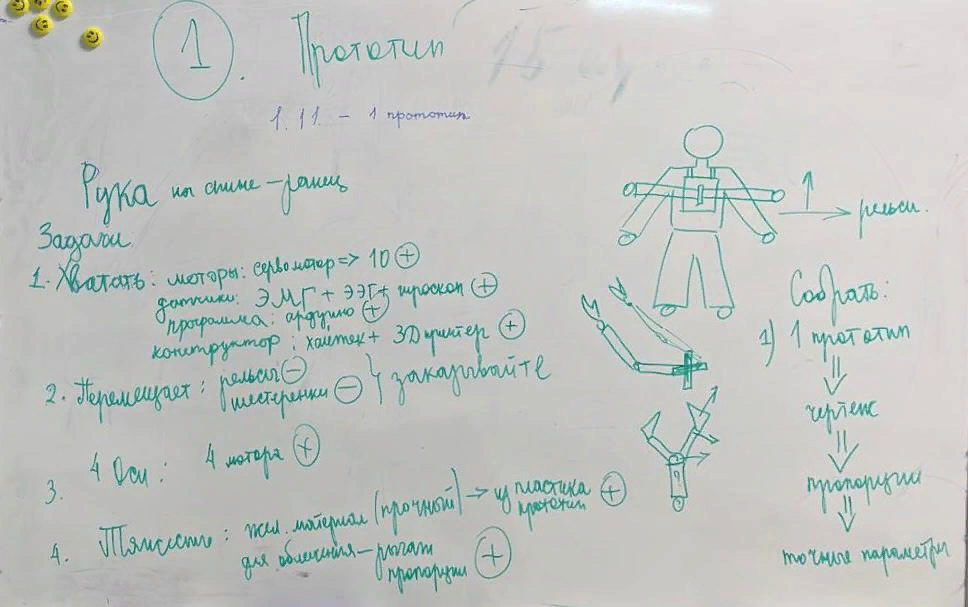 1. Прототип
1.11. – 1 прототип
Рука на спине – ранец
Задачи
1. Хватать: моторы: сервомотор => 10 (+)
датчики: ЭМГ + ЭЭГ + гироскоп (+)
программа: ардуино (+)
конструктор: хайтек + 3D принтер (+)
2. Перемещает: рельсы (–)
шестеренки (–) } заказывайте
3. 4 Оси: 4 мотора (+)
4. Тяжесть: жел. материал (прочный) → из пластика
прототип (+)
для облегчения – рычаги
пропорции (+)
рельси.
Собрать:
1) 1 прототип
⇓
чертеж
⇓
пропорции
⇓
точные параметры